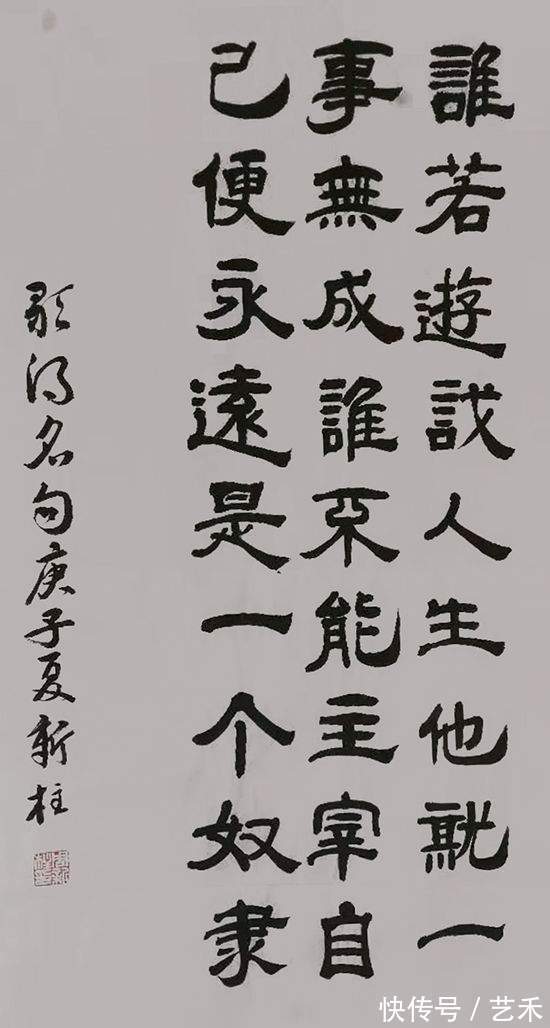 誰若遊戏人生他就一
事無成誰不能主宰自
己便永遠是一个奴隶
歌得名句庚子夏新柱
快传号 / 艺禾